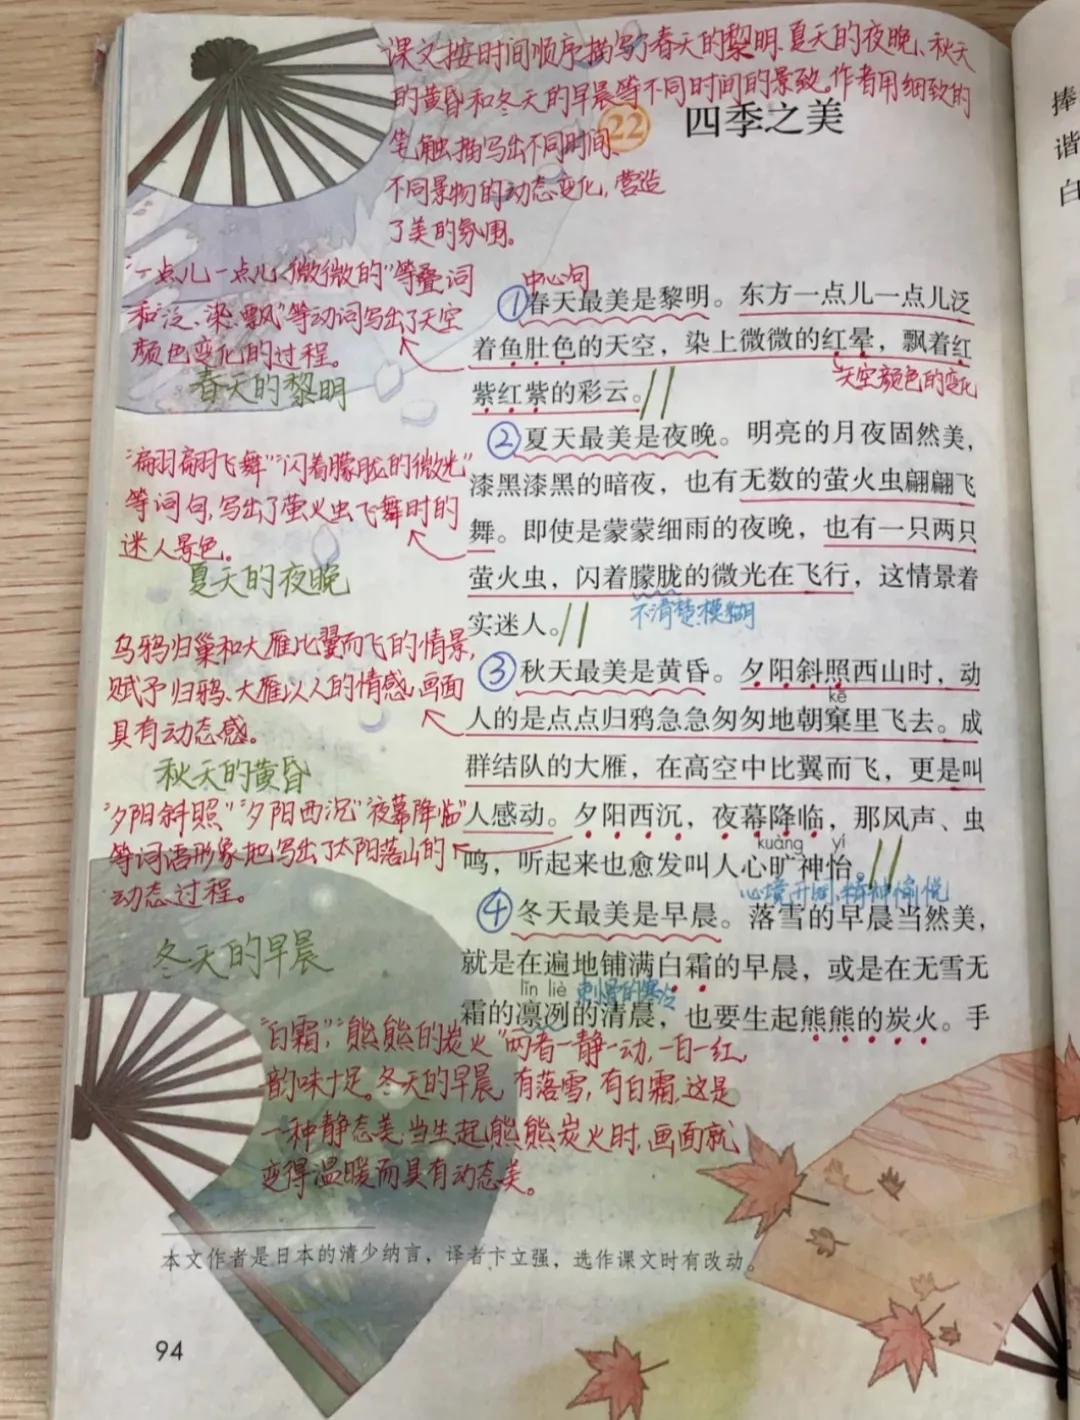 课文按时间顺序描写了春天的黎明、夏天的夜晚、秋天
的黄昏和冬天的早晨等不同时间的景致。作者用细致的
笔触描写出不同时间、
不同景物的动态变化,营造
了美的氛围。
22 四季之美
"一点儿一点儿、微微的"等叠词
和"泛、染、飘"等动词写出了天空
颜色变化的过程。
春天的黎明
中心句
①春天最美是黎明。东方一点儿一点儿泛
着鱼肚色的天空,染上微微的红晕,飘着红
天空颜色的变化
紫红紫的彩云。
②夏天最美是夜晚。明亮的月夜固然美,
漆黑漆黑的暗夜,也有无数的萤火虫翩翩飞
舞。即使是蒙蒙细雨的夜晚,也有一只两只
萤火虫,闪着朦胧的微光在飞行,这情景着
不清楚,模糊
实迷人。
"翩翩飞舞""闪着朦胧的微光"
等词句,写出了萤火虫飞舞时的
迷人景色。
夏天的夜晚
③秋天最美是黄昏。夕阳斜照西山时,动
kē
人的是点点归鸦急急匆匆地朝窠里飞去。成
群结队的大雁,在高空中比翼而飞,更是叫
人感动。夕阳西沉,夜幕降临,那风声、虫
kuàng yí
鸣,听起来也愈发叫人心旷神怡。
心境开阔,精神愉悦
乌鸦归巢和大雁比翼而飞的情景,
赋予归鸦、大雁以人的情感,画面
具有动态感。
秋天的黄昏
"夕阳斜照""夕阳西沉""夜幕降临"
等词语形象地写出了太阳落山的
动态过程。
④冬天最美是早晨。落雪的早晨当然美,
就是在遍地铺满白霜的早晨,或是在无雪无
lǐn liè 刺骨的寒冷
霜的凛冽的清晨,也要生起熊熊的炭火。手
冬天的早晨
"白霜","熊熊的炭火"两者一静一动,一白一红,
韵味十足。冬天的早晨,有落雪,有白霜,这是
一种静态美,当生起熊熊炭火时,画面就
变得温暖而具有动态美。
本文作者是日本的清少纳言,译者卞立强,选作课文时有改动。
94
捧
谐
白